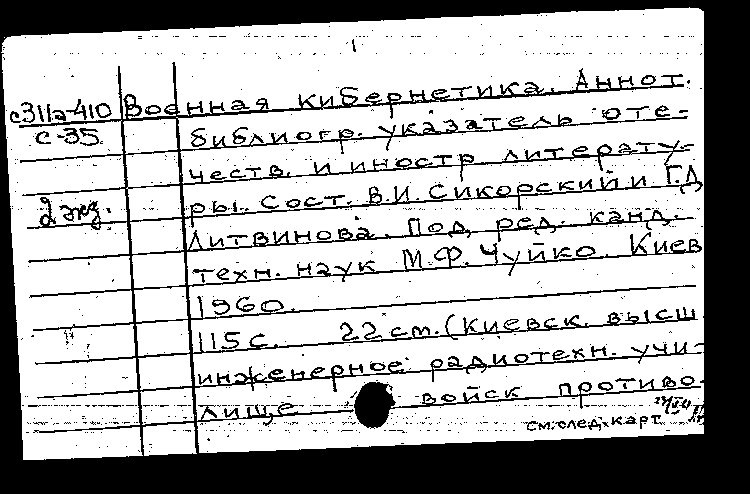 1
с311а-410 Военная кибернетика. Аннот.
С-35 библиогр. указатель оте-
честв. и иностр литерату-
2 экз. ры. Сост. В.И. Сикорский и Г.Д
Литвинова. Под ред. канд.
техн. наук М.Ф. Чуйко. Киев
1960.
115 с. 22 см. (Киевск. высш
инженерное радиотехн. учи-
лище войск противо-
см. след. карт.